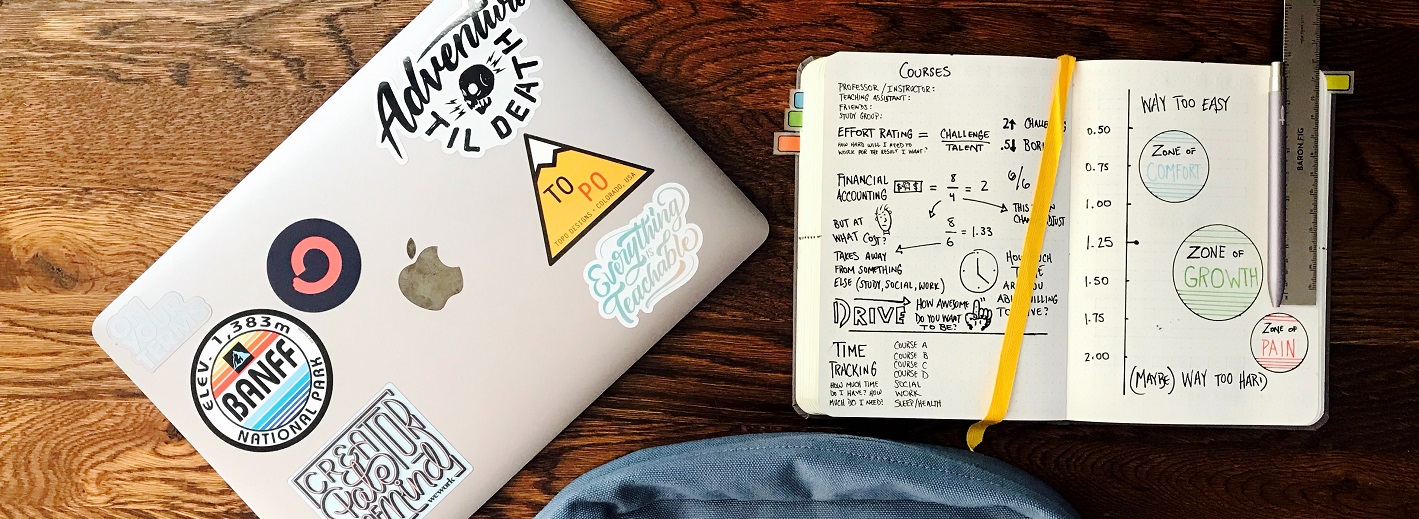 Adventure
TIL DEATH
TO PO
TOPO DESIGNS • COLORADO, USA
Everything
is
Teachable
ELEV. 1,383m
BANFF
NATIONAL PARK
CREATOR
State
OF Mind
wework
COURSES
PROFESSOR / INSTRUCTOR:
TEACHING ASSISTANT:
FRIENDS:
STUDY GROUP:
EFFORT RATING = CHALLENGE
TALENT
HOW HARD WILL I NEED TO
WORK FOR THE RESULT I WANT?
2↑
.5↓
FINANCIAL
ACCOUNTING
= 8/4 = 2
6/6
THIS
BUT AT
WHAT COST?
8/6 = 1.33
TAKES AWAY
FROM SOMETHING
ELSE (STUDY, SOCIAL, WORK)
DRIVE
HOW AWESOME
DO YOU WANT
TO BE?
TIME
TRACKING
HOW MUCH TIME
DO I HAVE? HOW
MUCH DO I NEED?
COURSE A
COURSE B
COURSE C
COURSE D
SOCIAL
WORK
SLEEP/HEALTH
WAY TOO EASY
0.50
0.75
1.00
1.25
1.50
1.75
2.00
ZONE OF
COMFORT
ZONE OF
GROWTH
ZONE OF
PAIN
(MAYBE) WAY TOO HARD
BARON FIG